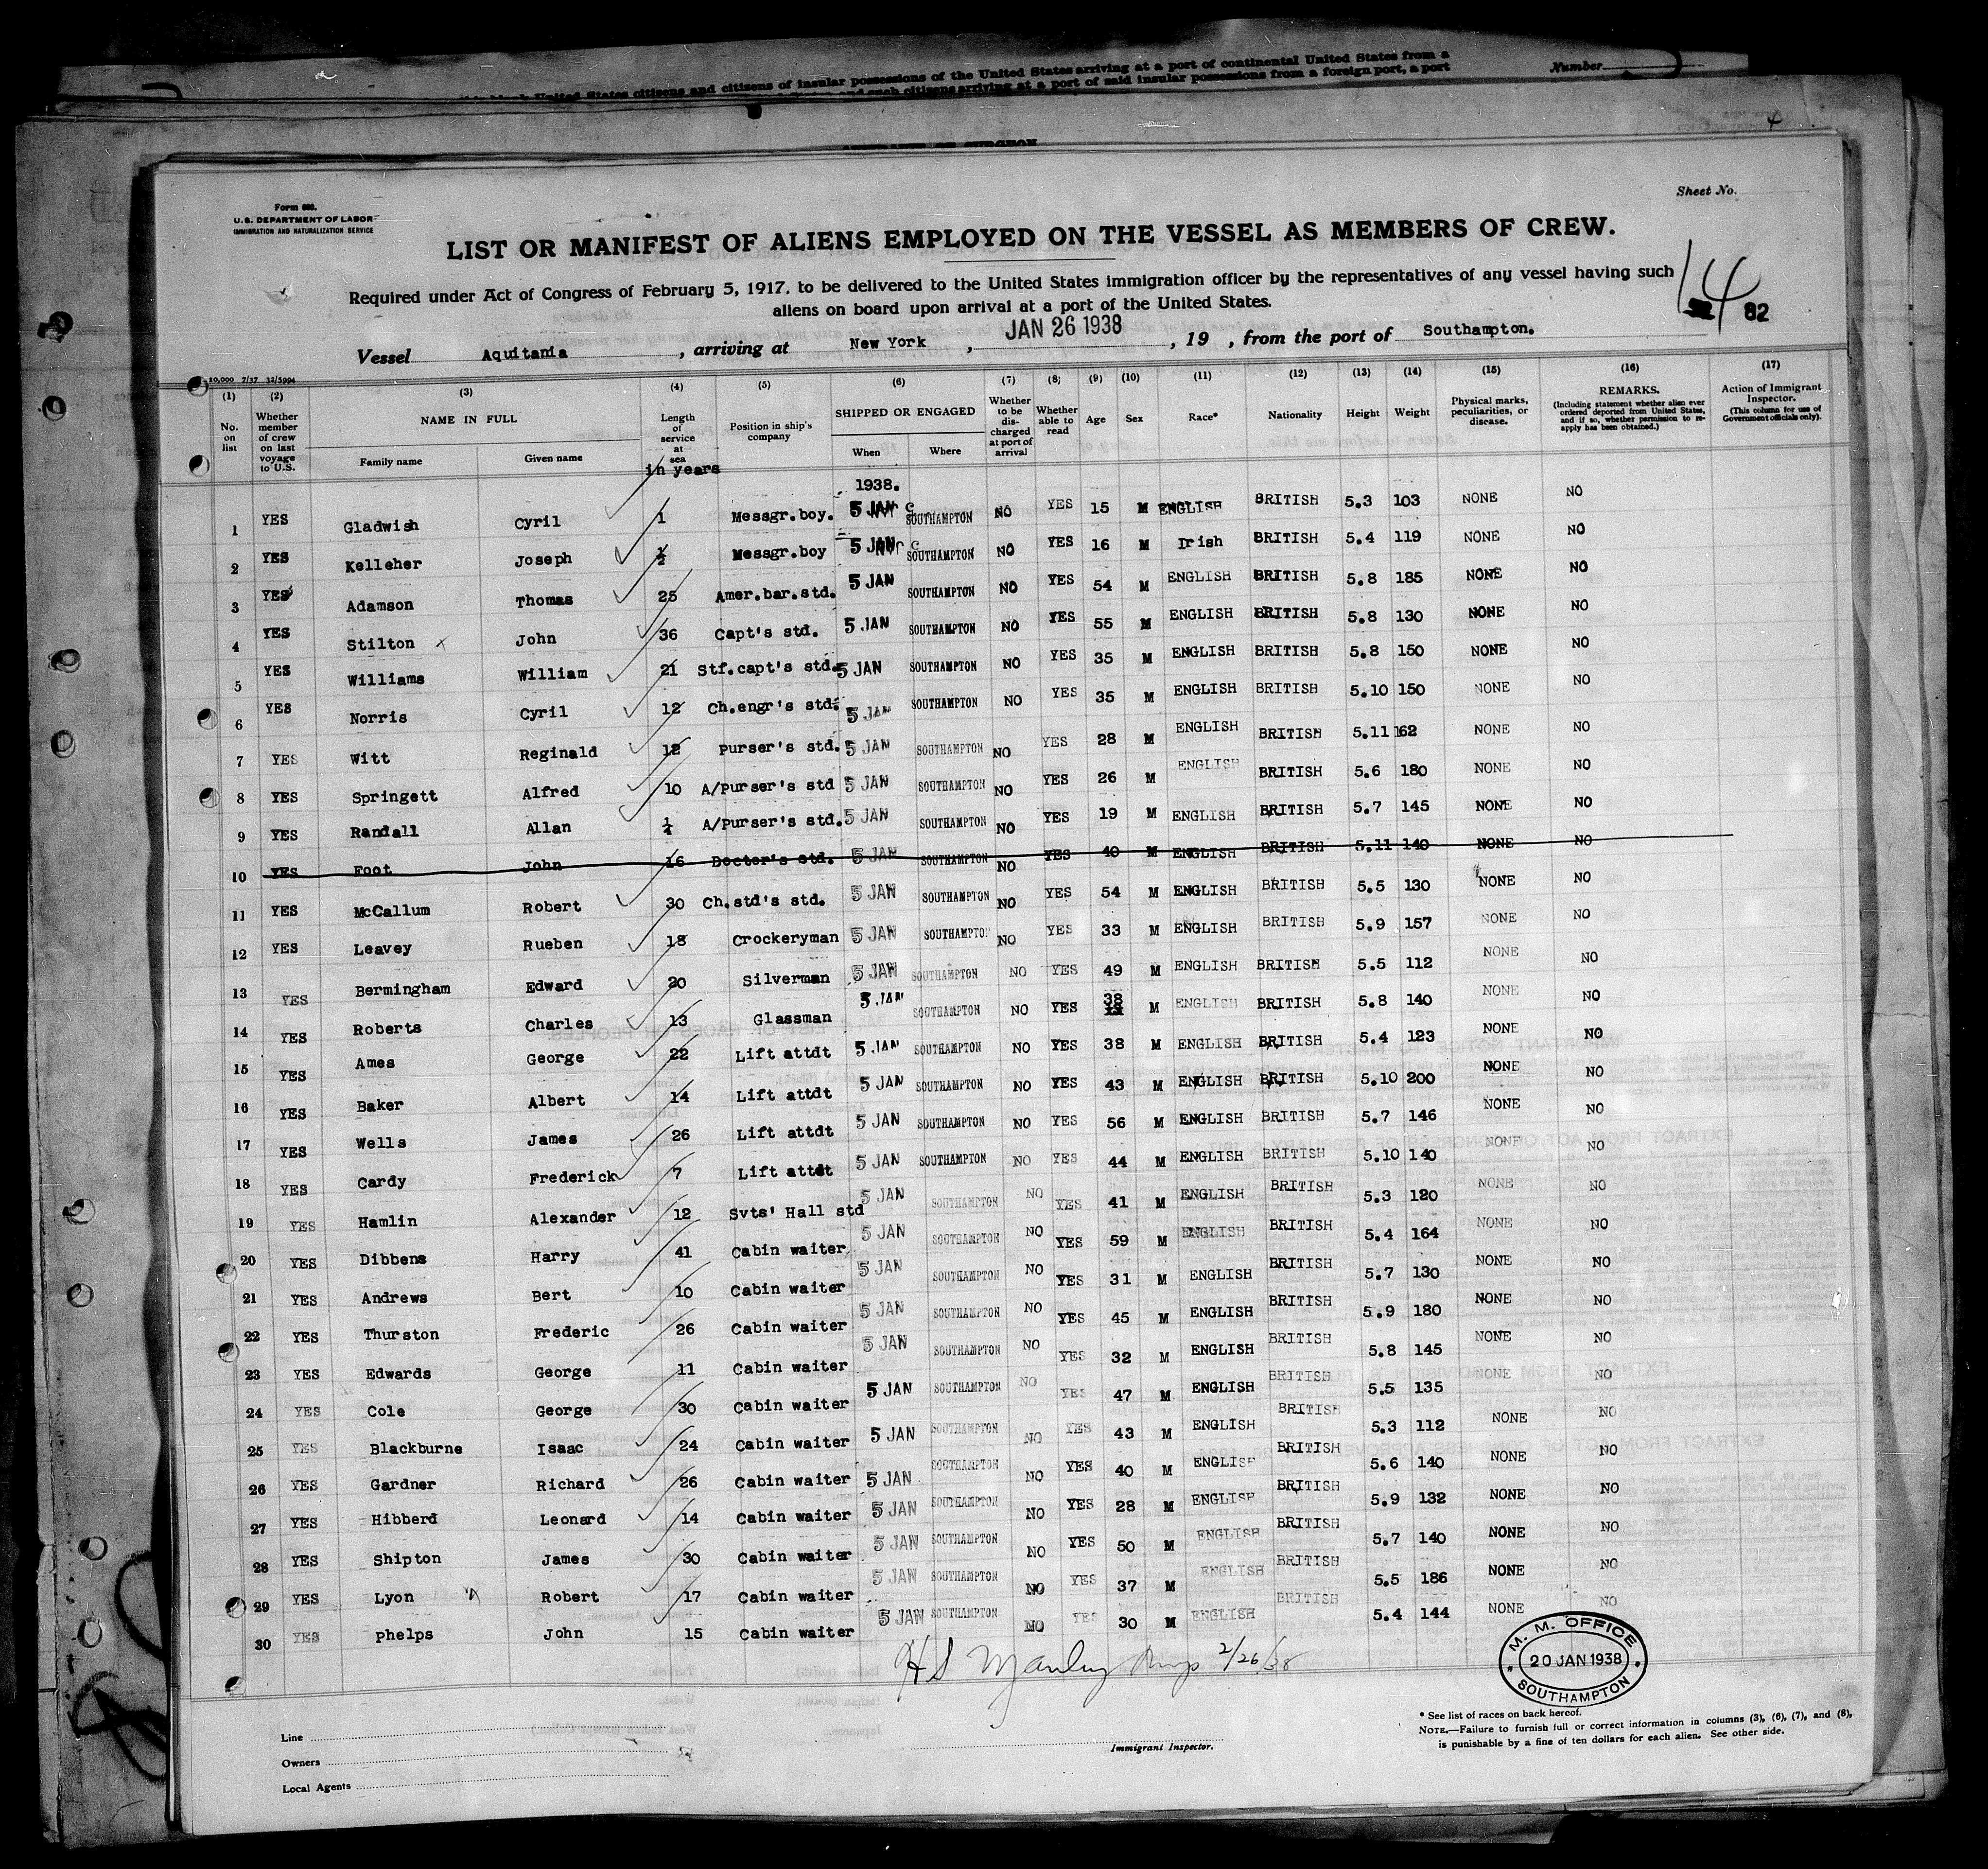 citizens and citizens of insular possessions of the United States arriving at a port of continental United States from a
and such citizens arriving at a port of said insular possessions from a foreign port, a port
Number
Sheet No.
Form 680.
U.S. DEPARTMENT OF LABOR
IMMIGRATION AND NATURALIZATION SERVICE
LIST OR MANIFEST OF ALIENS EMPLOYED ON THE VESSEL AS MEMBERS OF CREW.
Required under Act of Congress of February 5, 1917, to be delivered to the United States immigration officer by the representatives of any vessel having such
aliens on board upon arrival at a port of the United States.
14
82
Vessel Aquitania, arriving at New York, JAN 26 1938, 19 , from the port of Southampton.
10,000 7/37 32/5994
(1) (2) (3) (4) (5) (6) (7) (8) (9) (10) (11) (12) (13) (14) (15) (16) (17)
No. on list
Whether member of crew on last voyage to U.S.
NAME IN FULL
Family name
Given name
Length of service at sea
in years
Position in ship's company
SHIPPED OR ENGAGED
When
Where
Whether to be discharged at port of arrival
Whether able to read
Age
Sex
Race*
Nationality
Height
Weight
Physical marks, peculiarities, or disease.
REMARKS.
(Including statement whether alien ever ordered deported from United States, and if so, whether permission to reapply has been obtained.)
Action of Immigrant Inspector.
(This column for use of Government officials only).
1938.
1 YES Gladwish Cyril 1 Messgr.boy. 5 JAN SOUTHAMPTON NO YES 15 M ENGLISH BRITISH 5.3 103 NONE NO
2 YES Kelleher Joseph ½ Messgr.boy 5 JAN SOUTHAMPTON NO YES 16 M Irish BRITISH 5.4 119 NONE NO
3 YES Adamson Thomas 25 Amer.bar.std. 5 JAN SOUTHAMPTON NO YES 54 M ENGLISH BRITISH 5.8 185 NONE NO
4 YES Stilton John 36 Capt's std. 5 JAN SOUTHAMPTON NO YES 55 M ENGLISH BRITISH 5.8 130 NONE NO
5 YES Williams William 21 Stf.capt's std. 5 JAN SOUTHAMPTON NO YES 35 M ENGLISH BRITISH 5.8 150 NONE NO
6 YES Norris Cyril 12 Ch.engr's std. 5 JAN SOUTHAMPTON NO YES 35 M ENGLISH BRITISH 5.10 150 NONE NO
7 YES Witt Reginald 12 Purser's std. 5 JAN SOUTHAMPTON NO YES 28 M ENGLISH BRITISH 5.11 162 NONE NO
8 YES Springett Alfred 10 A/Purser's std 5 JAN SOUTHAMPTON NO YES 26 M ENGLISH BRITISH 5.6 180 NONE NO
9 YES Randall Allan ¼ A/Purser's std. 5 JAN SOUTHAMPTON NO YES 19 M ENGLISH BRITISH 5.7 145 NONE NO
10 YES Foot John 16 Doctor's std. 5 JAN SOUTHAMPTON NO YES 40 M ENGLISH BRITISH 5.11 140 NONE NO
11 YES McCallum Robert 30 Ch.std's std. 5 JAN SOUTHAMPTON NO YES 54 M ENGLISH BRITISH 5.5 130 NONE NO
12 YES Leavey Rueben 18 Crockeryman 5 JAN SOUTHAMPTON NO YES 33 M ENGLISH BRITISH 5.9 157 NONE NO
13 YES Bermingham Edward 20 Silverman 5 JAN SOUTHAMPTON NO YES 49 M ENGLISH BRITISH 5.5 112 NONE NO
14 YES Roberts Charles 13 Glassman 5 JAN SOUTHAMPTON NO YES 38 M ENGLISH BRITISH 5.8 140 NONE NO
15 YES Ames George 22 Lift attdt 5 JAN SOUTHAMPTON NO YES 38 M ENGLISH BRITISH 5.4 123 NONE NO
16 YES Baker Albert 14 Lift attdt 5 JAN SOUTHAMPTON NO YES 43 M ENGLISH BRITISH 5.10 200 NONE NO
17 YES Wells James 26 Lift attdt 5 JAN SOUTHAMPTON NO YES 56 M ENGLISH BRITISH 5.7 146 NONE NO
18 YES Cardy Frederick 7 Lift attdt 5 JAN SOUTHAMPTON NO YES 44 M ENGLISH BRITISH 5.10 140 NONE NO
19 YES Hamlin Alexander 12 Svts' Hall std 5 JAN SOUTHAMPTON NO YES 41 M ENGLISH BRITISH 5.3 120 NONE NO
20 YES Dibbens Harry 41 Cabin waiter 5 JAN SOUTHAMPTON NO YES 59 M ENGLISH BRITISH 5.4 164 NONE NO
21 YES Andrews Bert 10 Cabin waiter 5 JAN SOUTHAMPTON NO YES 31 M ENGLISH BRITISH 5.7 130 NONE NO
22 YES Thurston Frederic 26 Cabin waiter 5 JAN SOUTHAMPTON NO YES 45 M ENGLISH BRITISH 5.9 180 NONE NO
23 YES Edwards George 11 Cabin waiter 5 JAN SOUTHAMPTON NO YES 32 M ENGLISH BRITISH 5.8 145 NONE NO
24 YES Cole George 30 Cabin waiter 5 JAN SOUTHAMPTON NO YES 47 M ENGLISH BRITISH 5.5 135 NONE NO
25 YES Blackburne Isaac 24 Cabin waiter 5 JAN SOUTHAMPTON NO YES 43 M ENGLISH BRITISH 5.3 112 NONE NO
26 YES Gardner Richard 26 Cabin waiter 5 JAN SOUTHAMPTON NO YES 40 M ENGLISH BRITISH 5.6 140 NONE NO
27 YES Hibberd Leonard 14 Cabin waiter 5 JAN SOUTHAMPTON NO YES 28 M ENGLISH BRITISH 5.9 132 NONE NO
28 YES Shipton James 30 Cabin waiter 5 JAN SOUTHAMPTON NO YES 50 M ENGLISH BRITISH 5.7 140 NONE NO
29 YES Lyon Robert 17 Cabin waiter 5 JAN SOUTHAMPTON NO YES 37 M ENGLISH BRITISH 5.5 186 NONE NO
30 YES Phelps John 15 Cabin waiter 5 JAN SOUTHAMPTON NO YES 30 M ENGLISH BRITISH 5.4 144 NONE NO
2/26/38
M. M. OFFICE
20 JAN 1938
SOUTHAMPTON
Line
Owners
Local Agents
Immigrant Inspector.
* See list of races on back hereof.
NOTE.—Failure to furnish full or correct information in columns (3), (6), (7), and (8),
is punishable by a fine of ten dollars for each alien. See other side.